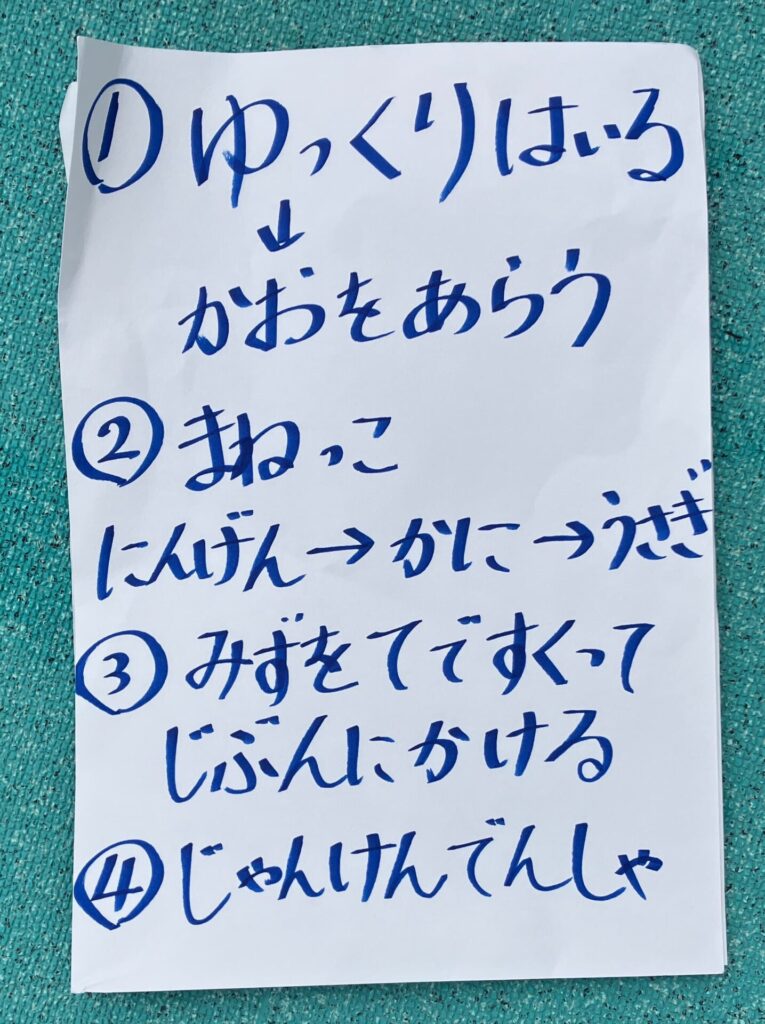 ① ゆっくりはいる
↓
かおをあらう
② まねっこ
にんげん→かに→うさぎ
③ みずをてですくって
じぶんにかける
④ じゃんけんでんしゃ